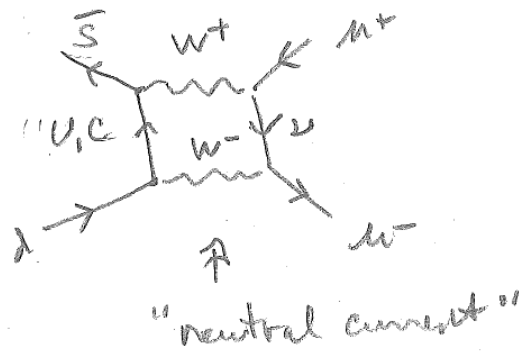 S̄ W⁺ μ⁺
U,C W⁻ ν
d μ⁻
"neutral current"